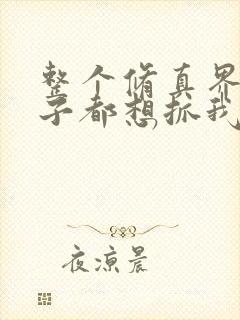 整个脩真界
子都想抓我
夜凉晨